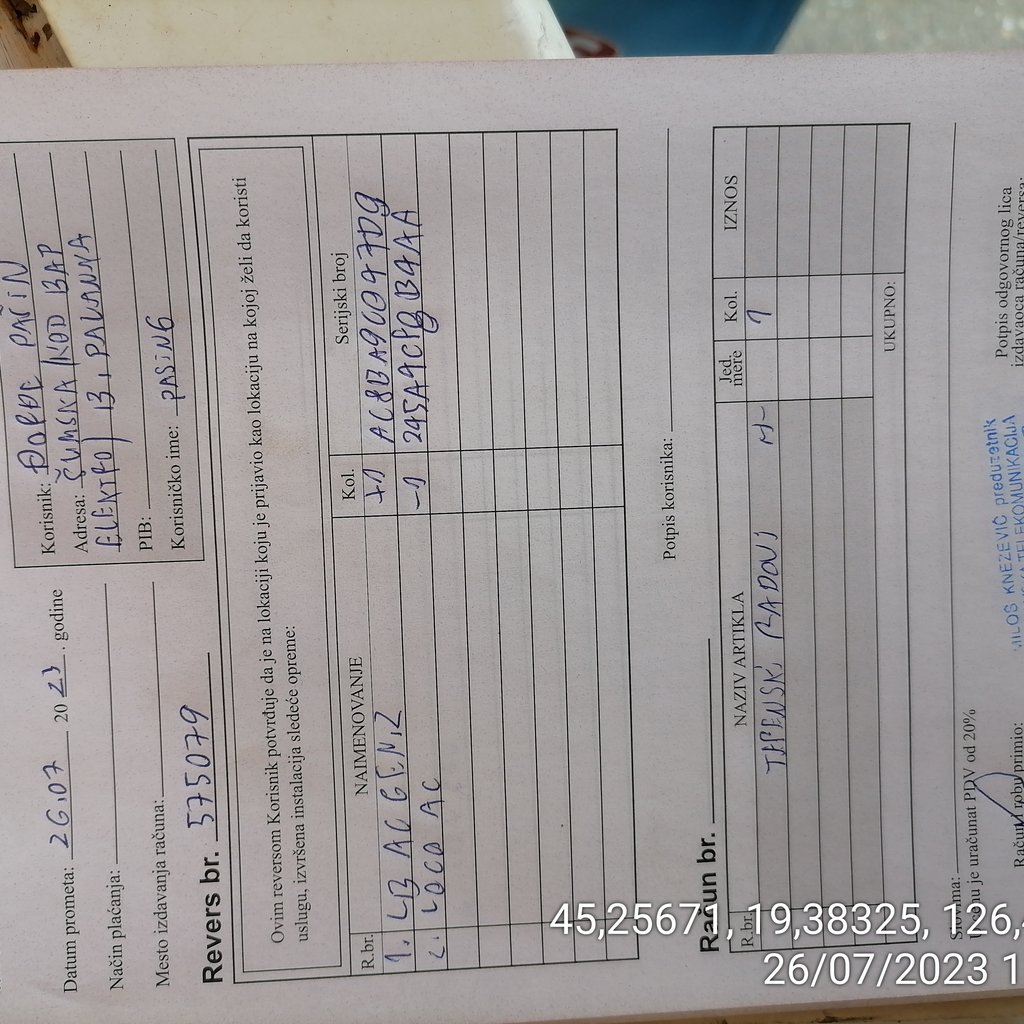 Datum prometa: 26.07 2023. godine
Način plaćanja:
Mesto izdavanja računa:
Korisnik: ĐORĐE PAŠIN
Adresa: ŠUMSKA (KOD BAP
ELEKTRO) 13, PALANKA
PIB:
Korisničko ime: PASING
Revers br. 575079
Ovim reversom Korisnik potvrđuje da je na lokaciji koju je prijavio kao lokaciju na kojoj želi da koristi
uslugu, izvršena instalacija sledeće opreme:
R.br. NAIMENOVANJE Kol. Serijski broj
1. LB AC GEN 2 +1
2. LOCO AC -1
Potpis korisnika:
Račun br.
R.br. NAZIV ARTIKLA Jed. mere Kol. IZNOS
TERENSKI RADOVI 1
UKUPNO:
Slovima:
je uračunat PDV od 20%
Račun i robu primio:
MILOŠ KNEŽEVIĆ preduzetnik
TELEKOMUNIKACIJA
Potpis odgovornog lica
izdavaoca računa/reversa:
45,25671, 19,38325, 126,
26/07/2023 1